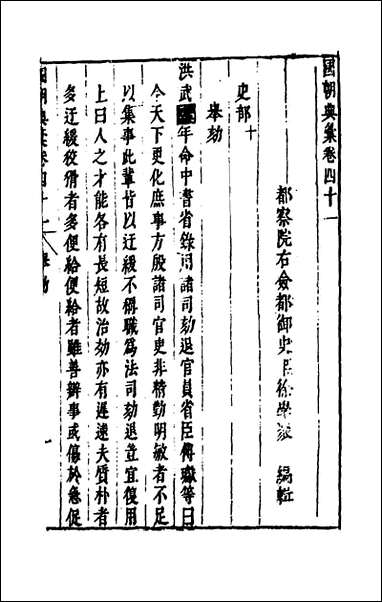 國朝典彙卷四十一
都察院右僉都御史臣徐學聚 編輯
吏部十
舉劾
洪武年命中書省錄用諸司劾退官員省臣傅瓛等曰
今天下更化庶事方殷諸司官吏非精勤明敏者不足
以集事此輩皆以迂緩不稱職為法司劾退豈宜復用
上曰人之才能各有長短故治劾亦有遲速夫質朴者
多迂緩狡猾者多便給便給者雖善辦事或傷於急促
國朝典彙卷四十一 舉劾 一